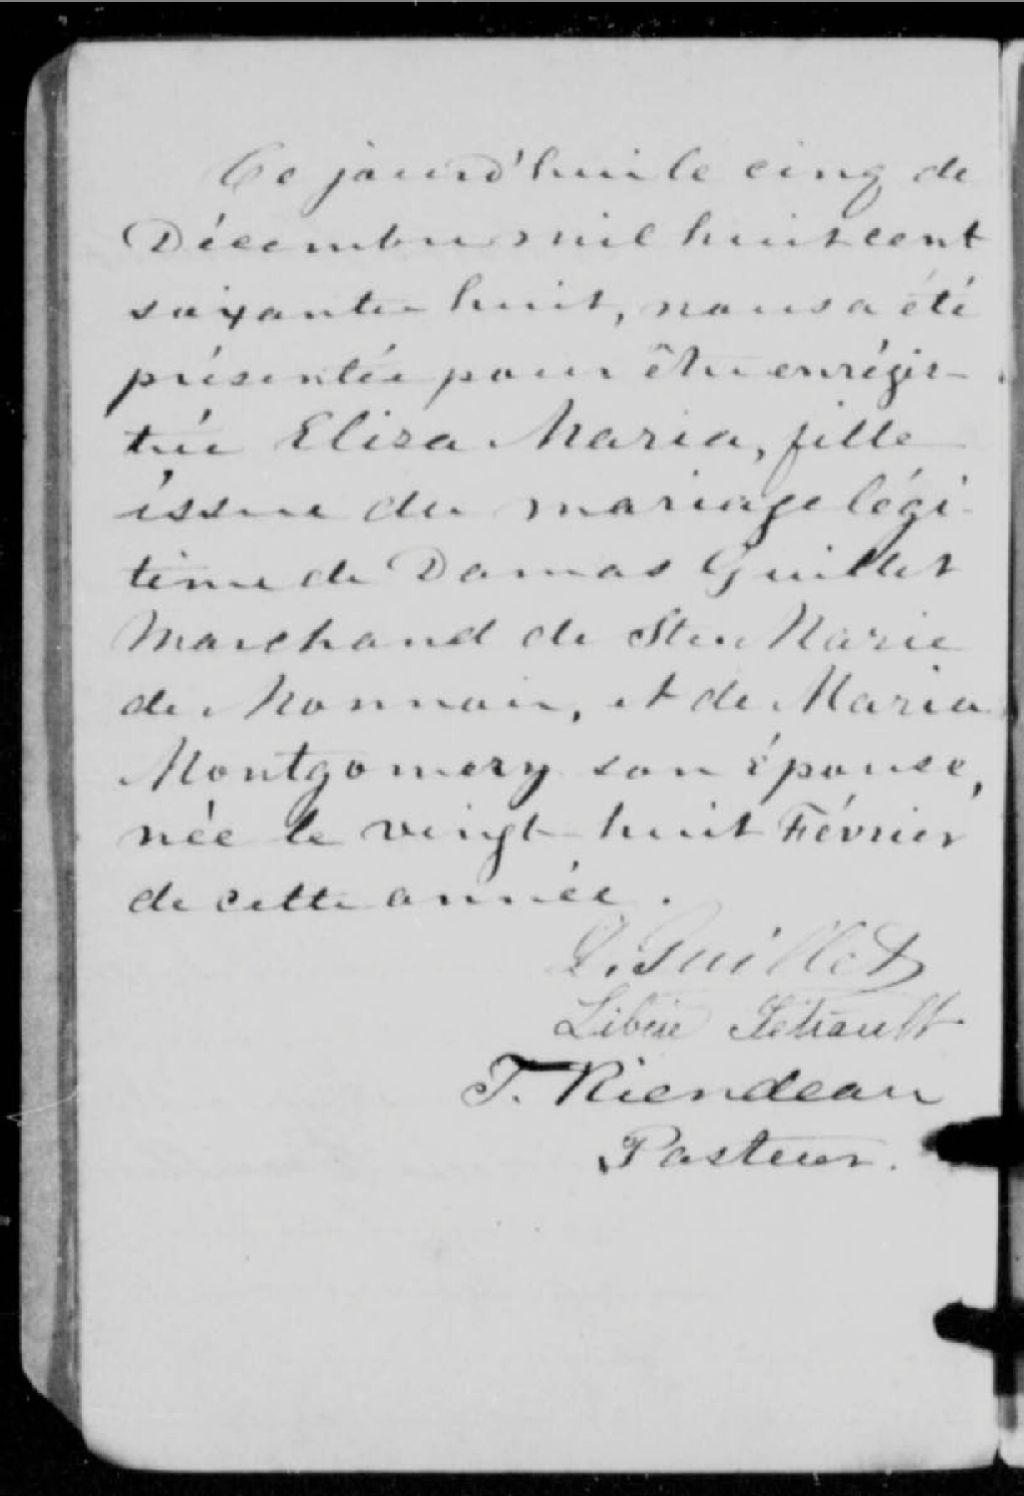 Ce jourd'hui le cinq de
Décembre mil huit cent
soixante huit, nous a été
présentée pour être enrégis-
trée Eliza Maria, fille
issue du mariage légi-
time de Damas Guillet
Marchand de Ste Marie
de Monnoir, et de Maria
Montgomery son épouse,
née le vingt huit Février
de cette année.
D. Guillet
Libère Tétrault
T. Riendeau
Pasteur.